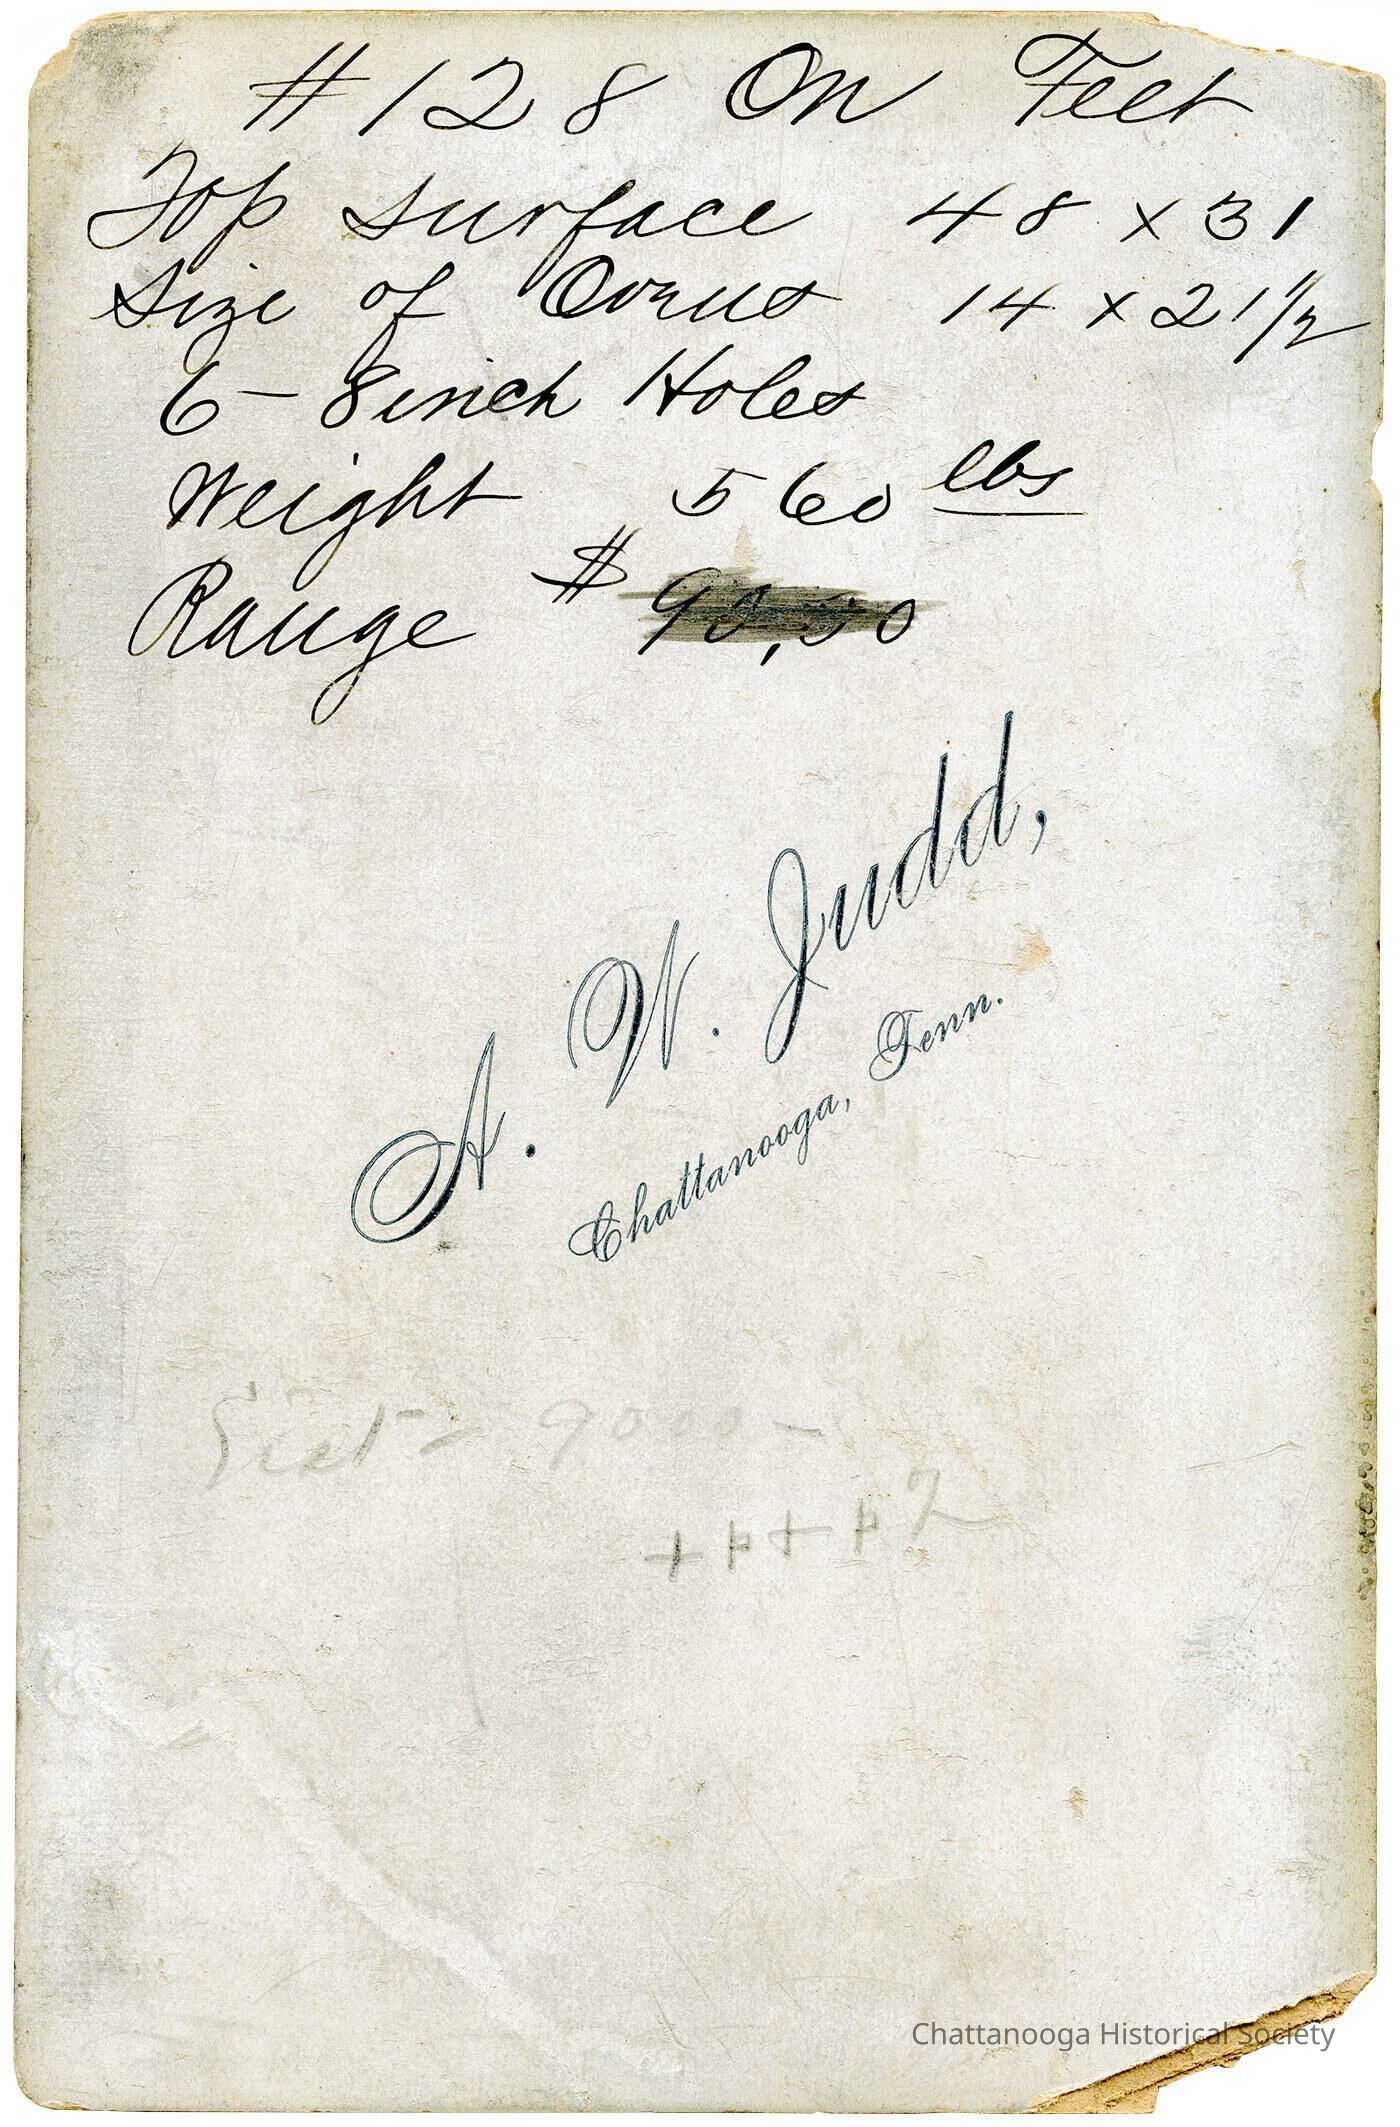 #128 On Feet
Top Surface 48 x 31
Size of Ovens 14 x 21 1/2
6 - 8 inch Holes
Weight 560 lbs
Range $ 90.00
A. W. Judd,
Chattanooga, Tenn.
9000 -
Chattanooga Historical Society